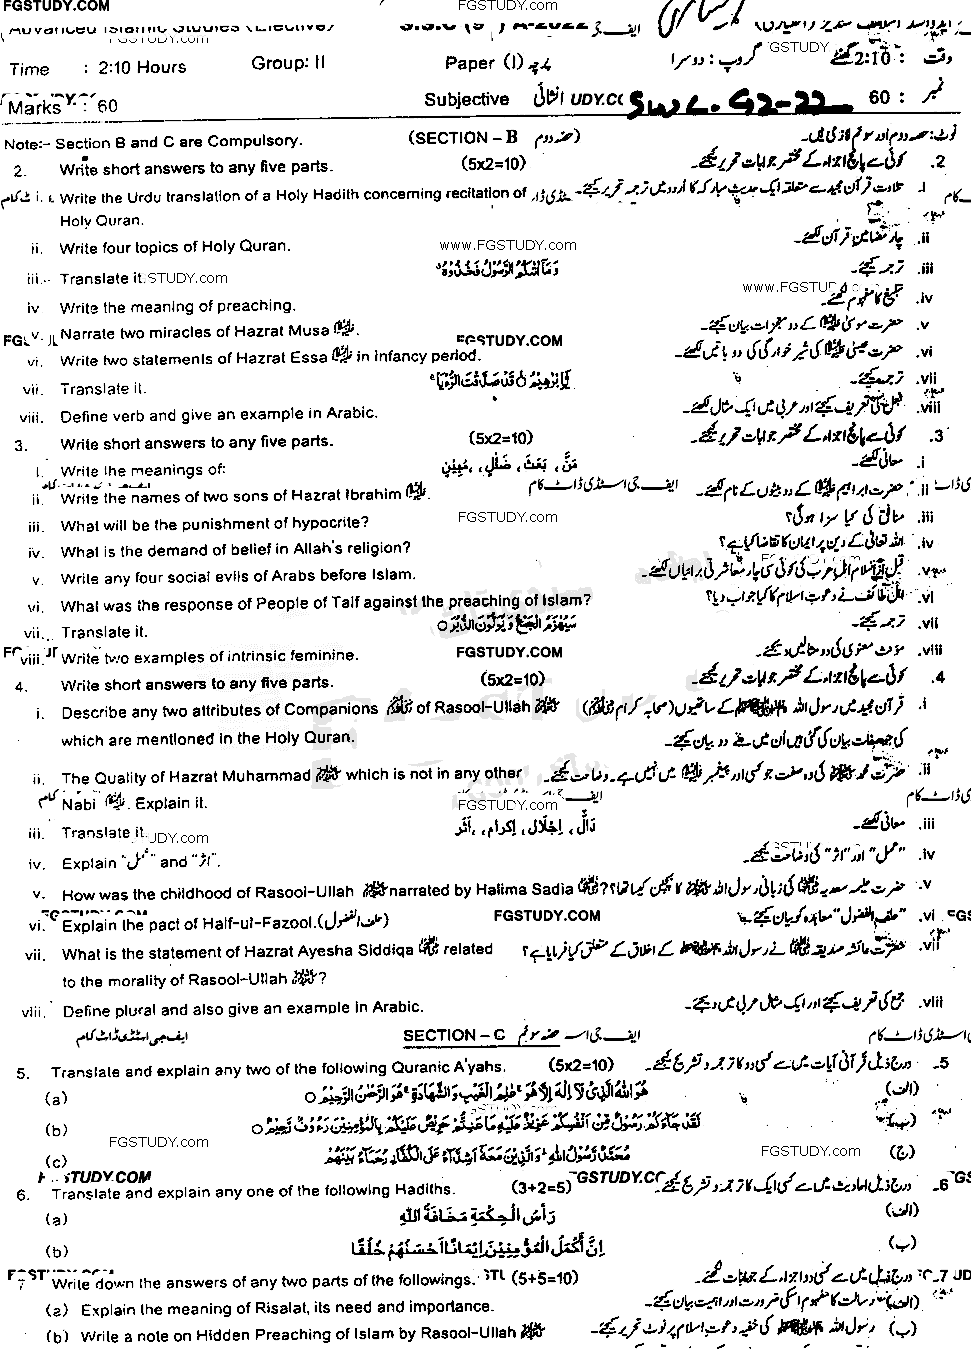 FGSTUDY.COM FGSTUDY.com
Advanced Islamic Studies (Elective) S.S.C A-2022
FGSTUDY.com FGSTUDY
Time : 2:10 Hours Group: II Paper (I) پرچہ گروپ: دوسرا وقت : 2:10 گھنٹے
Marks : 60 Subjective انشائی UDY.CO SWL-G2-22 نمبر : 60
Note:- Section B and C are Compulsory. (SECTION - B حصہ دوم) نوٹ:۔ حصہ دوم اور سوئم لازمی ہیں۔
2. Write short answers to any five parts. (5x2=10) 2. کوئی سے پانچ اجزاء کے مختصر جوابات تحریر کیجئے۔
i. Write the Urdu translation of a Holy Hadith concerning recitation of i. تلاوت قرآن مجید سے متعلقہ ایک حدیث مبارکہ کا اردو میں ترجمہ تحریر کیجئے۔
Holy Quran.
ii. Write four topics of Holy Quran. www.FGSTUDY.com ii. چار مضامین قرآن لکھئے۔
iii. Translate it. STUDY.com وَمَآ اٰتٰىكُمُ الرَّسُوْلُ فَخُذُوْهُ iii. ترجمہ کیجئے۔
iv Write the meaning of preaching. www.FGSTUDY.com iv. تبلیغ کا مفہوم لکھئے۔
v. Narrate two miracles of Hazrat Musa. v. حضرت موسیٰ کے دو معجزات بیان کیجئے۔
FGSTUDY.COM
vi. Write two statements of Hazrat Essa in infancy period. vi. حضرت عیسیٰ کی شیر خوارگی کی دو باتیں لکھئے۔
vii. Translate it. يّٰٓاِبْرٰهِيْمُ قَدْ صَدَّقْتَ الرُّءْيَا vii. ترجمہ کیجئے۔
viii. Define verb and give an example in Arabic. viii. فعل کی تعریف کیجئے اور عربی میں ایک مثال لکھئے۔
3. Write short answers to any five parts. (5x2=10) 3. کوئی سے پانچ اجزاء کے مختصر جوابات تحریر کیجئے۔
i. Write the meanings of: مَنَّ ، بَعَثَ ، ضَلٰلٍ ، مُّبِيْنٍ i. معانی لکھئے۔
ii. Write the names of two sons of Hazrat Ibrahim. ایف جی اسٹڈی ڈاٹ کام ii. حضرت ابراہیم کے دو بیٹوں کے نام لکھئے۔
iii. What will be the punishment of hypocrite? FGSTUDY.com iii. منافق کی کیا سزا ہوگی؟
iv. What is the demand of belief in Allah's religion? iv. اللہ تعالیٰ کے دین پر ایمان کا تقاضا کیا ہے؟
v. Write any four social evils of Arabs before Islam. v. قبل از اسلام اہل عرب کی کوئی سی چار معاشرتی برائیاں لکھئے۔
vi. What was the response of People of Taif against the preaching of Islam? vi. اہل طائف نے دعوت اسلام کا کیا جواب دیا؟
vii. Translate it. سَيُهْزَمُ الْجَمْعُ وَيُوَلُّوْنَ الدُّبُرَ vii. ترجمہ کیجئے۔
viii. Write two examples of intrinsic feminine. FGSTUDY.COM viii. مونث معنوی کی دو مثالیں دیجئے۔
4. Write short answers to any five parts. (5x2=10) 4. کوئی سے پانچ اجزاء کے مختصر جوابات تحریر کیجئے۔
i. Describe any two attributes of Companions of Rasool-Ullah i. قرآن مجید میں رسول اللہ کے ساتھیوں (صحابہ کرام)
which are mentioned in the Holy Quran. کی جو صفات بیان کی گئی ہیں اُن میں سے دو بیان کیجئے۔
ii. The Quality of Hazrat Muhammad which is not in any other ii. حضرت محمد کی وہ صفت جو کسی اور پیغمبر میں نہیں ہے۔ وضاحت کیجئے۔
Nabi. Explain it. FGSTUDY.com
iii. Translate it. UDY.com دَالٌّ ، اِجْلَال ، اِکرام ، آثَر iii. معانی لکھئے۔
iv. Explain "عمل" and "اثر". iv. "عمل" اور "اثر" کی وضاحت کیجئے۔
v. How was the childhood of Rasool-Ullah narrated by Halima Sadia? v. حضرت حلیمہ سعدیہ کی زبانی رسول اللہ کا بچپن کیسا تھا؟
vi. Explain the pact of Half-ul-Fazool. (حلف الفضول) FGSTUDY.COM vi. "حلف الفضول" معاہدہ کو بیان کیجئے۔
vii. What is the statement of Hazrat Ayesha Siddiqa related vii. حضرت عائشہ صدیقہ نے رسول اللہ کے اخلاق کے متعلق کیا فرمایا ہے؟
to the morality of Rasool-Ullah?
viii. Define plural and also give an example in Arabic. viii. جمع کی تعریف کیجئے اور ایک مثال عربی میں دیجئے۔
ایف جی اسٹڈی ڈاٹ کام SECTION - C حصہ سوئم ایف جی اسٹڈی ڈاٹ کام
5. Translate and explain any two of the following Quranic A'yahs. (5x2=10) 5. درج ذیل قرآنی آیات میں سے کسی دو کا ترجمہ و تشریح کیجئے۔
(a) هُوَ اللّٰهُ الَّذِيْ لَآ اِلٰهَ اِلَّا هُوَ عٰلِمُ الْغَيْبِ وَالشَّهَادَةِ هُوَ الرَّحْمٰنُ الرَّحِيْمُ (الف)
(b) لَقَدْ جَآءَكُمْ رَسُوْلٌ مِّنْ اَنْفُسِكُمْ عَزِيْزٌ عَلَيْهِ مَا عَنِتُّمْ حَرِيْصٌ عَلَيْكُمْ بِالْمُؤْمِنِيْنَ رَءُوْفٌ رَّحِيْمٌ (ب)
FGSTUDY.com FGSTUDY.com
(c) مُحَمَّدٌ رَّسُوْلُ اللّٰهِ وَالَّذِيْنَ مَعَهٗٓ اَشِدَّآءُ عَلَى الْكُفَّارِ رُحَمَآءُ بَيْنَهُمْ (ج)
6. Translate and explain any one of the following Hadiths. (3+2=5) 6. درج ذیل احادیث میں سے کسی ایک کا ترجمہ و تشریح کیجئے۔
(a) رَأْسُ الْحِكْمَةِ مَخَافَةُ اللّٰهِ (الف)
(b) اِنَّ اَكْمَلَ الْمُؤْمِنِيْنَ اِيْمَانًا اَحْسَنُهُمْ خُلُقًا (ب)
7 Write down the answers of any two parts of the followings. (5+5=10) 7. درج ذیل میں سے کسی دو اجزاء کے جوابات لکھئے۔
(a) Explain the meaning of Risalat, its need and importance. (الف) رسالت کا مفہوم اسکی ضرورت اور اہمیت بیان کیجئے۔
(b) Write a note on Hidden Preaching of Islam by Rasool-Ullah (ب) رسول اللہ کی خفیہ دعوت اسلام پر نوٹ تحریر کیجئے۔